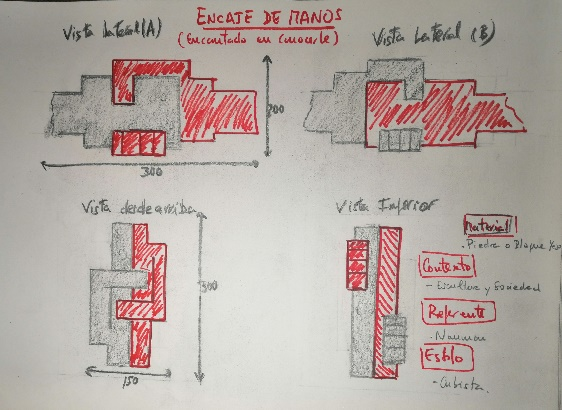 ENCAJE DE MANOS
(Encantado en conocerle)
Vista Lateral (A)
Vista Lateral (B)
200
300
Vista desde arriba
300
150
Vista Inferior
Material
. Piedra o Bloque
Contexto
- Escultura y Sociedad
Referente
. Nauman
Estilo
- Cubista.